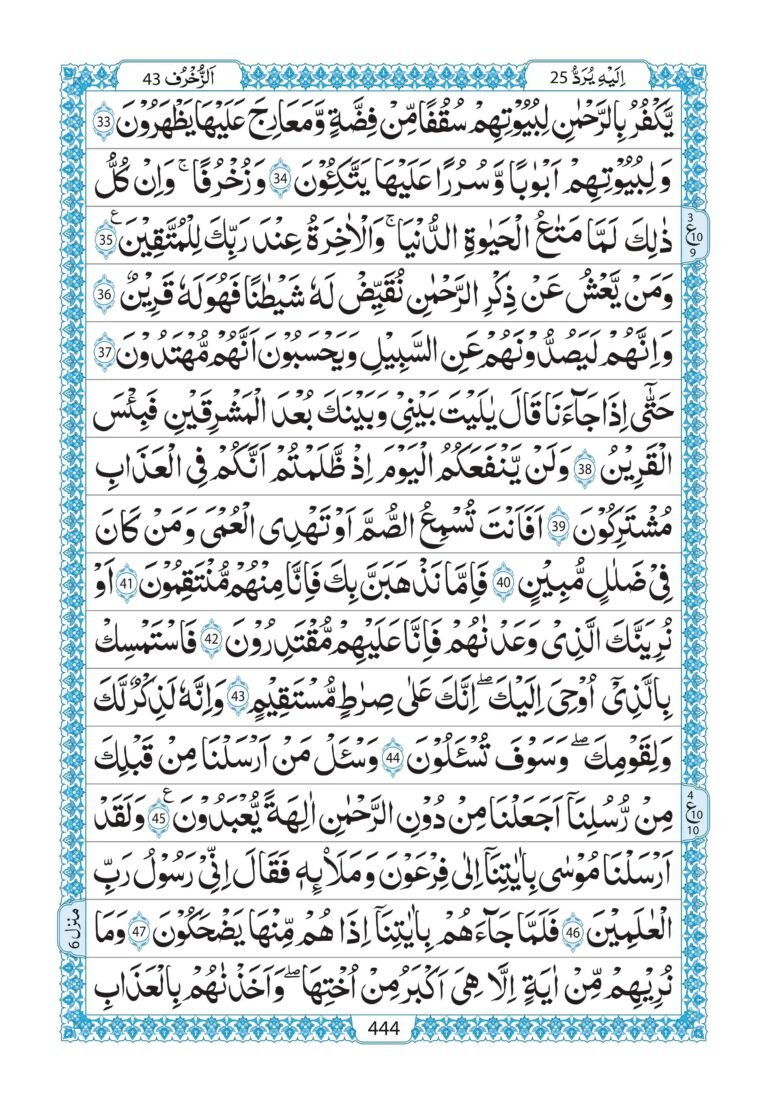 اِلَيْهِ يُرَدُّ 25
اَلزُّخْرُف 43
يَّكْفُرُ بِالرَّحْمٰنِ لِبُيُوْتِهِمْ سُقُفًا مِّنْ فِضَّةٍ وَّمَعَارِجَ عَلَيْهَا يَظْهَرُوْنَ 33
وَلِبُيُوْتِهِمْ اَبْوَابًا وَّسُرُرًا عَلَيْهَا يَتَّكِئُوْنَ 34 وَزُخْرُفًا ۚ وَاِنْ كُلُّ
ذٰلِكَ لَمَّا مَتَاعُ الْحَيٰوةِ الدُّنْيَا ۚ وَالْاٰخِرَةُ عِنْدَ رَبِّكَ لِلْمُتَّقِيْنَ 35 ع
3 ع 10 9
وَمَنْ يَّعْشُ عَنْ ذِكْرِ الرَّحْمٰنِ نُقَيِّضْ لَهٗ شَيْطٰنًا فَهُوَ لَهٗ قَرِيْنٌ 36
وَاِنَّهُمْ لَيَصُدُّوْنَهُمْ عَنِ السَّبِيْلِ وَيَحْسَبُوْنَ اَنَّهُمْ مُّهْتَدُوْنَ 37
حَتّٰٓى اِذَا جَآءَنَا قَالَ يٰلَيْتَ بَيْنِيْ وَبَيْنَكَ بُعْدَ الْمَشْرِقَيْنِ فَبِئْسَ
الْقَرِيْنُ 38 وَلَنْ يَّنْفَعَكُمُ الْيَوْمَ اِذْ ظَّلَمْتُمْ اَنَّكُمْ فِى الْعَذَابِ
مُشْتَرِكُوْنَ 39 اَفَاَنْتَ تُسْمِعُ الصُّمَّ اَوْ تَهْدِى الْعُمْىَ وَمَنْ كَانَ
فِىْ ضَلٰلٍ مُّبِيْنٍ 40 فَاِمَّا نَذْهَبَنَّ بِكَ فَاِنَّا مِنْهُمْ مُّنْتَقِمُوْنَ 41 اَوْ
نُرِيَنَّكَ الَّذِىْ وَعَدْنٰهُمْ فَاِنَّا عَلَيْهِمْ مُّقْتَدِرُوْنَ 42 فَاسْتَمْسِكْ
بِالَّذِىْٓ اُوْحِىَ اِلَيْكَ ۖ اِنَّكَ عَلٰى صِرَاطٍ مُّسْتَقِيْمٍ 43 وَاِنَّهٗ لَذِكْرٌ لَّكَ
وَلِقَوْمِكَ ۖ وَسَوْفَ تُسْـَٔلُوْنَ 44 وَسْـَٔلْ مَنْ اَرْسَلْنَا مِنْ قَبْلِكَ
مِنْ رُّسُلِنَآ اَجَعَلْنَا مِنْ دُوْنِ الرَّحْمٰنِ اٰلِهَةً يُّعْبَدُوْنَ 45 ع وَلَقَدْ
4 ع 10 10
اَرْسَلْنَا مُوْسٰى بِاٰيٰتِنَآ اِلٰى فِرْعَوْنَ وَمَلَا۟ئِهٖ فَقَالَ اِنِّىْ رَسُوْلُ رَبِّ
الْعٰلَمِيْنَ 46 فَلَمَّا جَآءَهُمْ بِاٰيٰتِنَآ اِذَا هُمْ مِّنْهَا يَضْحَكُوْنَ 47 وَمَا
منزل 6
نُرِيْهِمْ مِّنْ اٰيَةٍ اِلَّا هِىَ اَكْبَرُ مِنْ اُخْتِهَا ۖ وَاَخَذْنٰهُمْ بِالْعَذَابِ
444